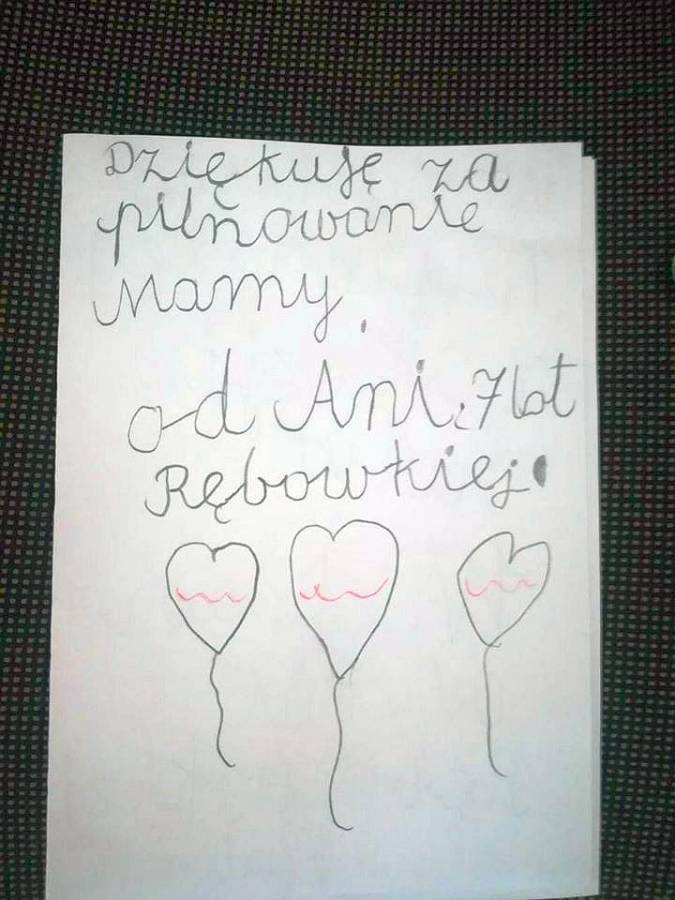 Dziękuję za
pilnowanie
Mamy.
od Ani 7lat
Rębowkiej.